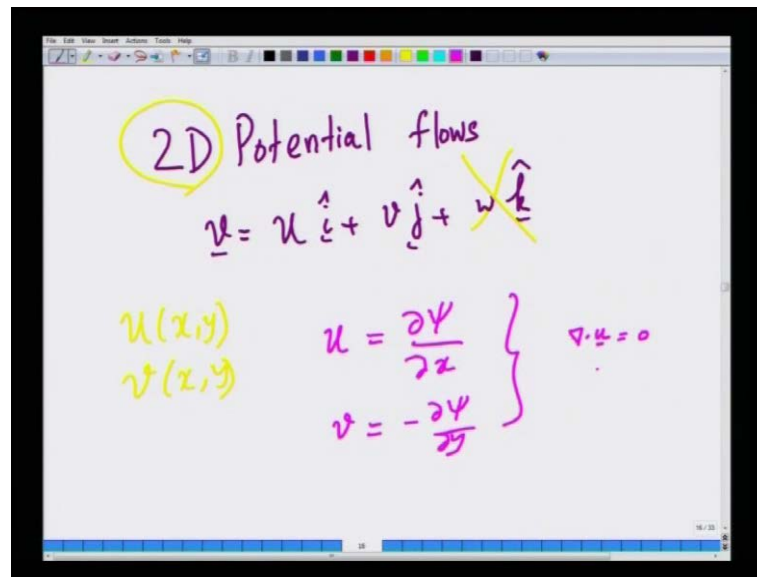 File Edit View Insert Actions Tools Help
B I
2D Potential flows
v = u î + v ĵ + w k̂
u(x,y)
v(x,y)
u = ∂ψ/∂x
v = -∂ψ/∂y
∇·u = 0
16/33
16